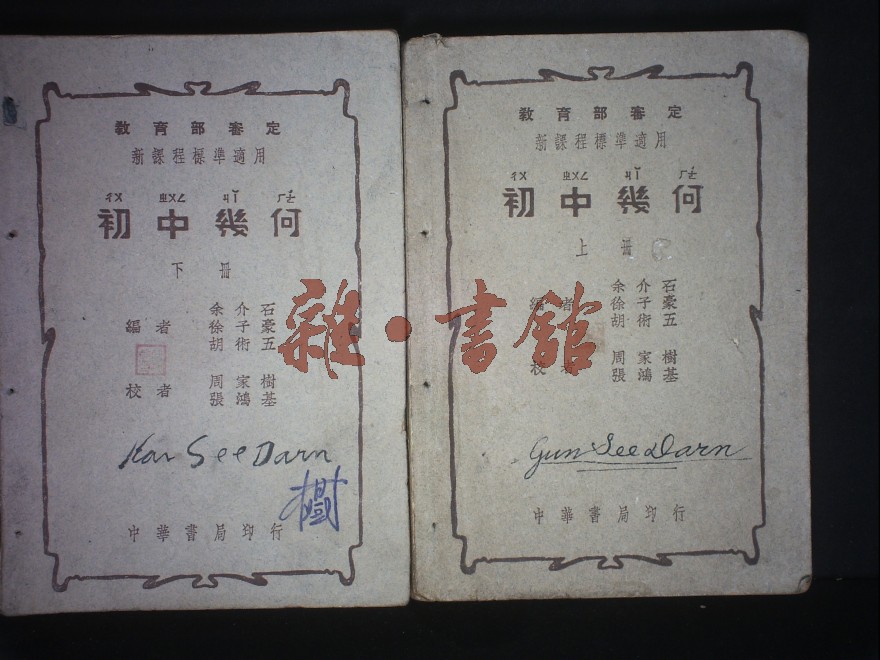 教育部審定
新課程標準適用
ㄔㄨ ㄓㄨㄥ ㄐㄧˇ ㄏㄜˊ
初中幾何
下冊
編者
余介石
徐子豪
胡術五
校者
周家樹
張鴻基
Kar See Darn
樹
中華書局印行
教育部審定
新課程標準適用
ㄔㄨ ㄓㄨㄥ ㄐㄧˇ ㄏㄜˊ
初中幾何
上冊
編者
余介石
徐子豪
胡術五
校者
周家樹
張鴻基
Gun See Darn
中華書局印行
雜·書館